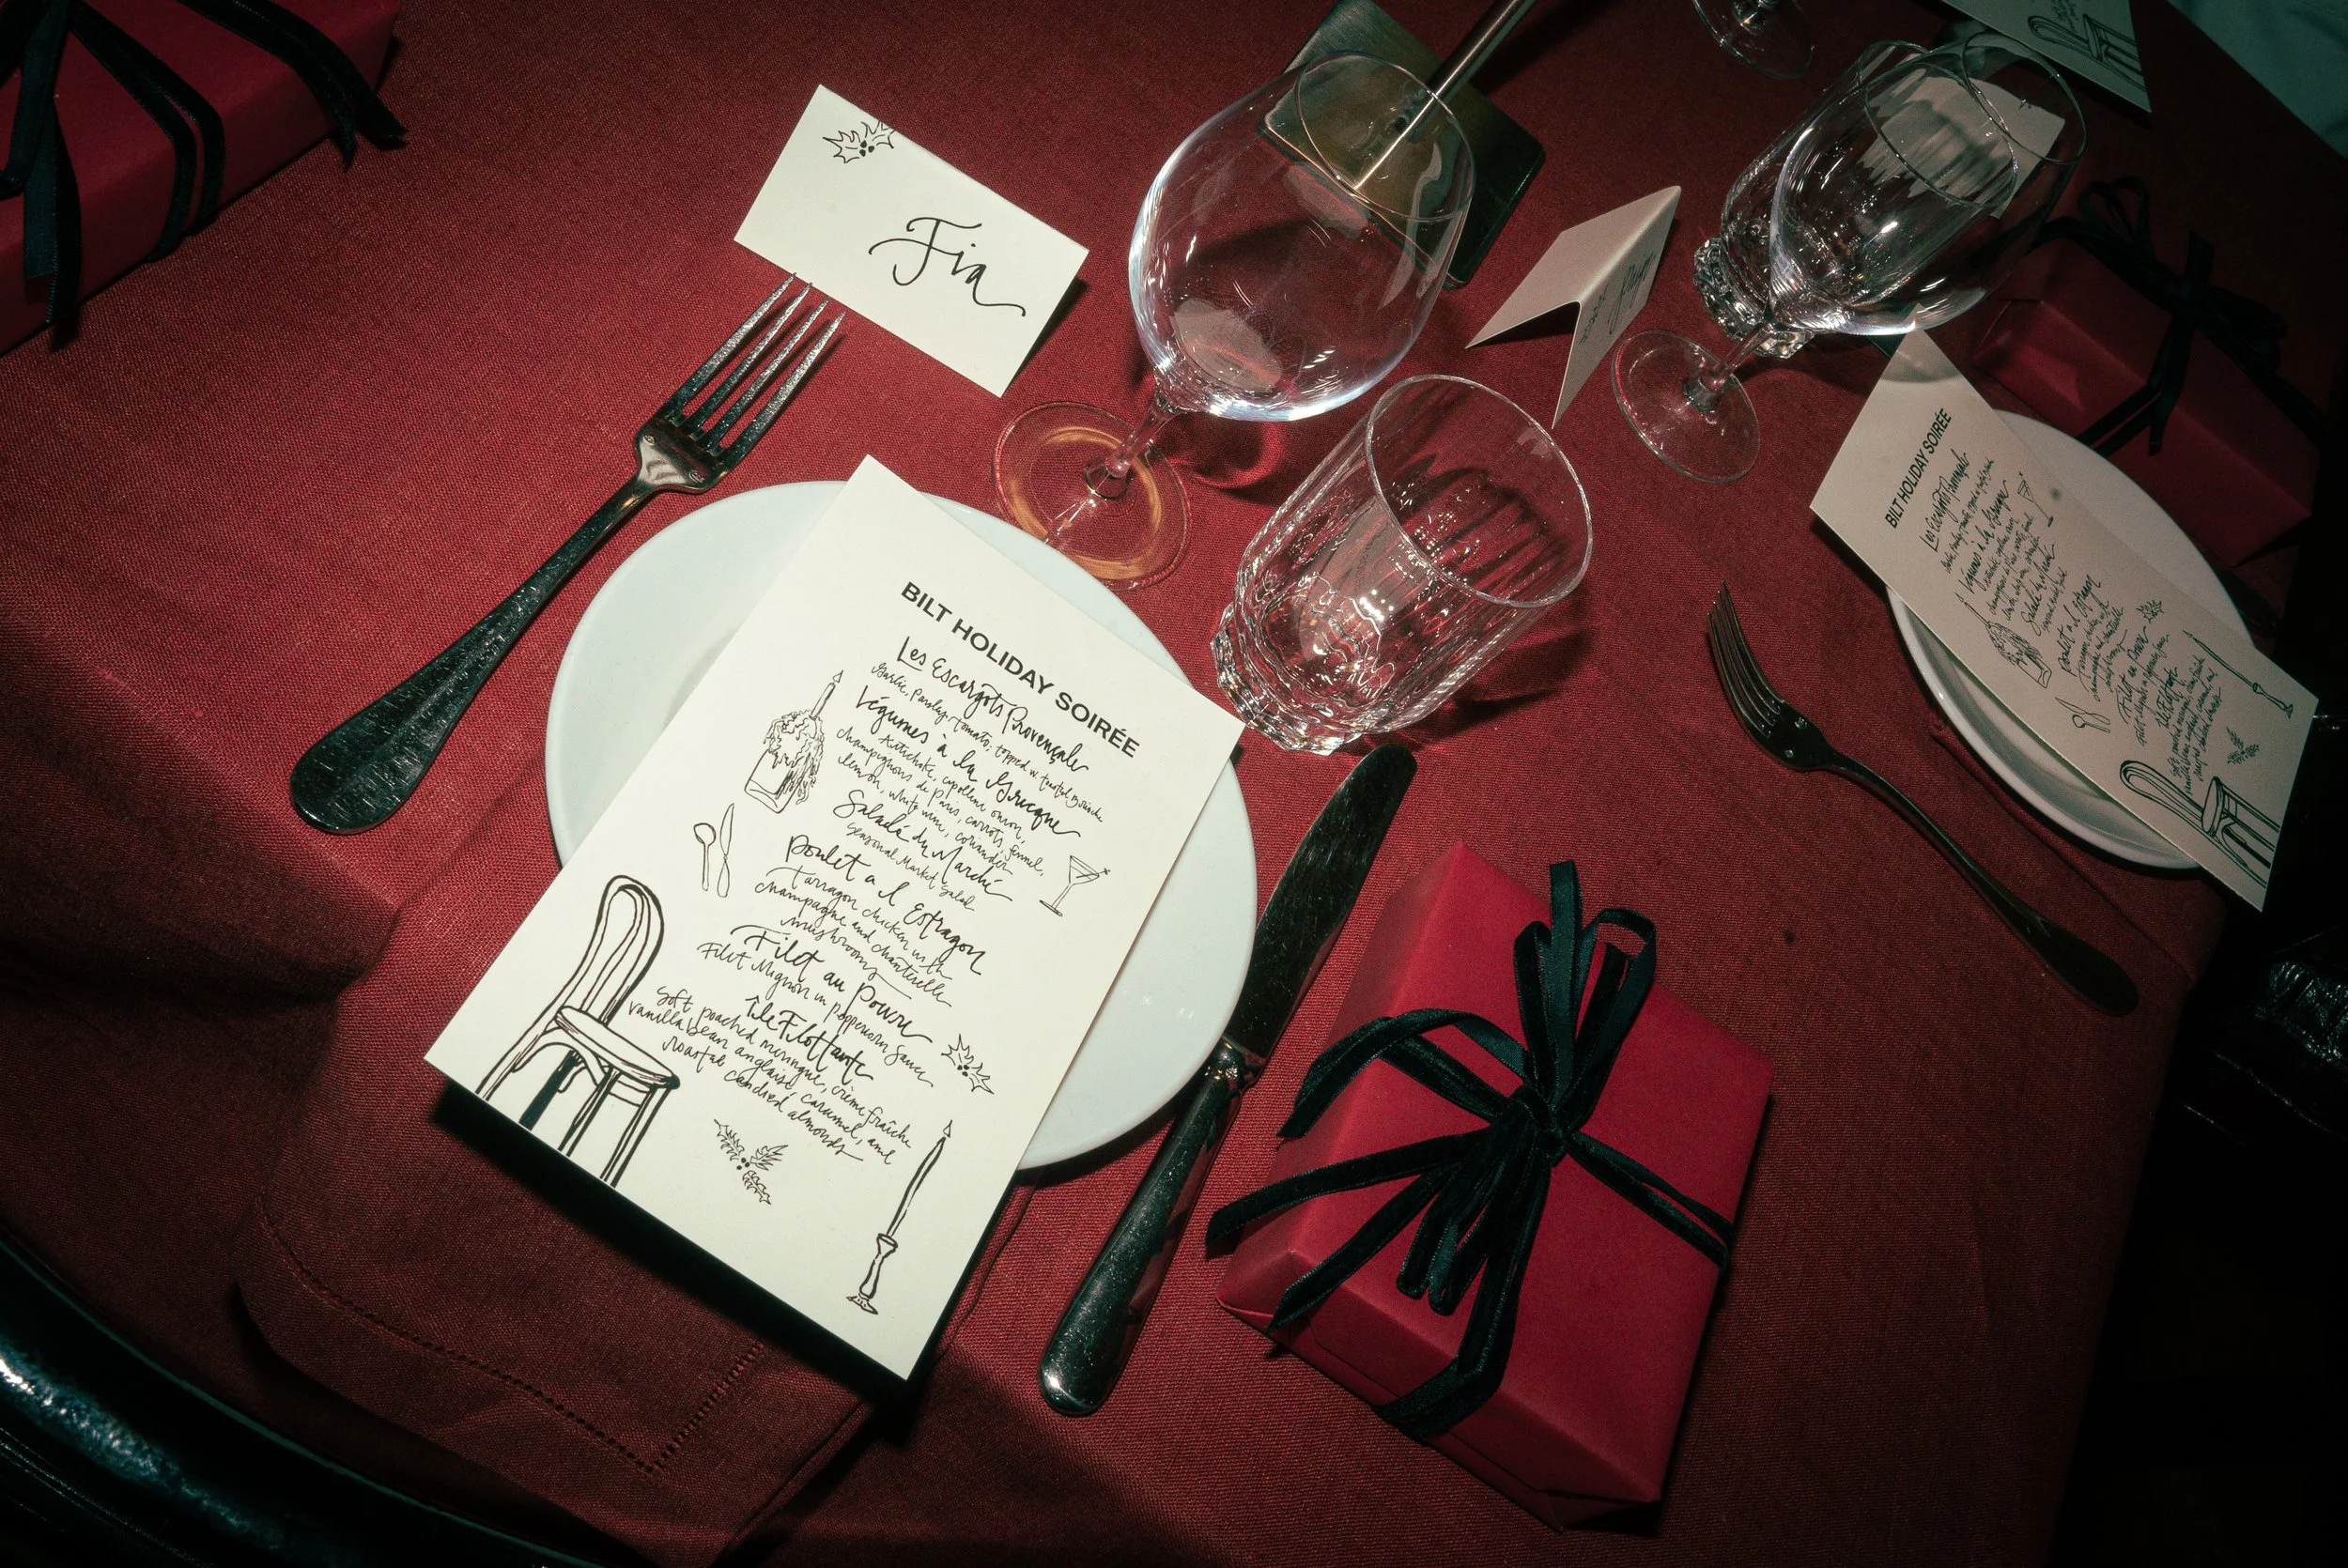 Fia
BILT HOLIDAY SOIRÉE
Les Escargots Provençale
Garlic, parsley, tomato, topped w toasted brioche
Légumes à la Grecque
Artichoke, cipollini onion,
champignons de Paris, carrots, fennel,
lemon, white wine, coriander
Salade du Marché
Seasonal Market Salad
Poulet a l Estragon
Tarragon chicken with
champagne and chanterelle
mushrooms
Filet au Poivre
Filet Mignon in peppercorn sauce
île Flottante
Soft poached meringue, crème fraîche
vanilla bean anglaise, caramel, and
roasted candied almonds
BILT HOLIDAY SOIRÉE
Les Escargots Provençale
Légumes à la Grecque
Salade du Marché
Poulet a l Estragon
Filet au Poivre
île Flottante